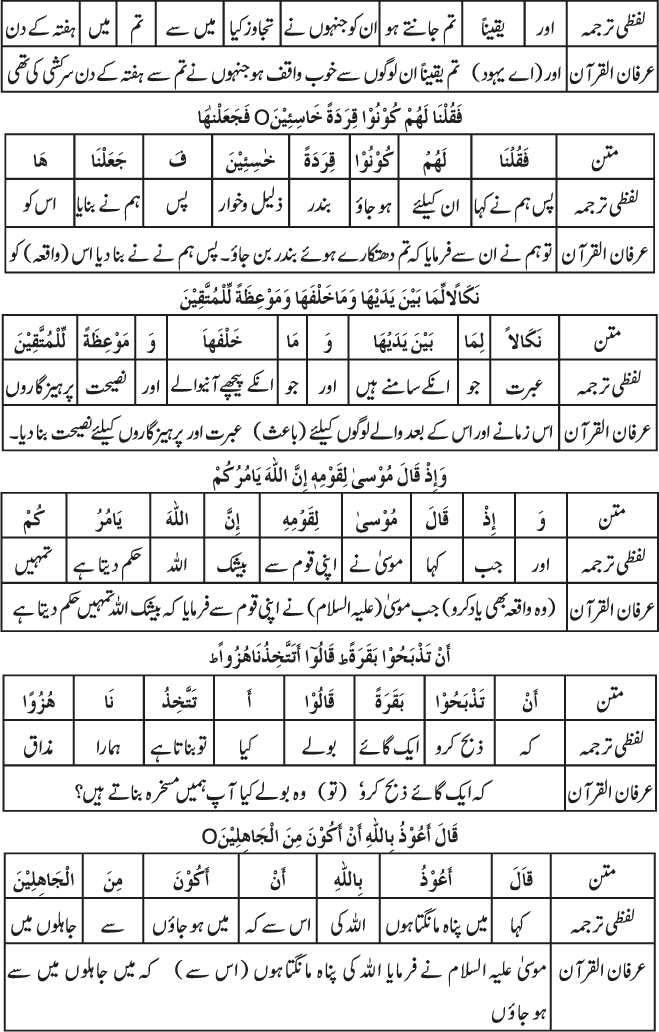 لفظی ترجمہ اور یقیناً تم جانتے ہو ان کو جنہوں نے تجاوز کیا میں سے تم میں ہفتہ کے دن
عرفان القرآن اور (اے یہود) تم یقیناً ان لوگوں سے خوب واقف ہو جنہوں نے تم سے ہفتہ کے دن سرکشی کی تھی
فَقُلْنَا لَهُمْ كُوْنُوْا قِرَدَةً خَاسِئِيْنَO فَجَعَلْنٰهَا
متن فَقُلْنَا لَهُمْ كُوْنُوْا قِرَدَةً خٰسِئِيْنَ فَ جَعَلْنَا هَا
لفظی ترجمہ پس ہم نے کہا ان کیلئے ہو جاؤ بندر ذلیل وخوار پس ہم نے بنایا اس کو
عرفان القرآن تو ہم نے ان سے فرمایا کہ تم دھتکارے ہوئے بندر بن جاؤ۔ پس ہم نے نے بنا دیا اس (واقعہ) کو
نَكَالًا لِّمَا بَيْنَ يَدَيْهَا وَمَا خَلْفَهَا وَمَوْعِظَةً لِّلْمُتَّقِيْنَ
متن نَكَالاً لِمَا بَيْنَ يَدَيْهَا وَ مَا خَلْفَهَا وَ مَوْعِظَةً لِّلْمُتَّقِيْنَ
لفظی ترجمہ عبرت جو انکے سامنے ہیں اور جو انکے پیچھے آنیوالے اور نصیحت پرہیز گاروں
عرفان القرآن اس زمانے اور اس کے بعد والے لوگوں کیلئے (باعث) عبرت اور پرہیز گاروں کیلئے نصیحت بنا دیا۔
وَاِذْ قَالَ مُوْسىٰ لِقَوْمِهٖ اِنَّ اللّٰهَ يَامُرُكُمْ
متن وَ اِذْ قَالَ مُوْسىٰ لِقَوْمِهٖ اِنَّ اللّٰهَ يَامُرُ كُمْ
لفظی ترجمہ اور جب کہا موسیٰ نے اپنی قوم سے بیشک اللہ حکم دیتا ہے تمہیں
عرفان القرآن (وہ واقعہ بھی یاد کرو) جب موسیٰ (علیہ السلام) نے اپنی قوم سے فرمایا کہ بیشک اللہ تمہیں حکم دیتا ہے
اَنْ تَذْبَحُوْا بَقَرَةً ط قَالُوْٓا اَتَتَّخِذُنَا هُزُواً ط
متن اَنْ تَذْبَحُوْا بَقَرَةً قَالُوْا اَ تَتَّخِذُ نَا هُزُوًا
لفظی ترجمہ کہ ذبح کرو ایک گائے بولے کیا تو بناتا ہے ہمارا مذاق
عرفان القرآن کہ ایک گائے ذبح کرو (تو) وہ بولے کیا آپ ہمیں مسخرہ بناتے ہیں؟
قَالَ اَعُوْذُ بِاللّٰهِ اَنْ اَكُوْنَ مِنَ الْجَاهِلِيْنَO
متن قَالَ اَعُوْذُ بِاللّٰهِ اَنْ اَكُوْنَ مِنَ الْجَاهِلِيْنَ
لفظی ترجمہ کہا میں پناہ مانگتا ہوں اللہ کی اس سے کہ میں ہو جاؤں سے جاہلوں میں
عرفان القرآن موسیٰ علیہ السلام نے فرمایا اللہ کی پناہ مانگتا ہوں (اس سے) کہ میں جاہلوں میں سے
ہو جاؤں